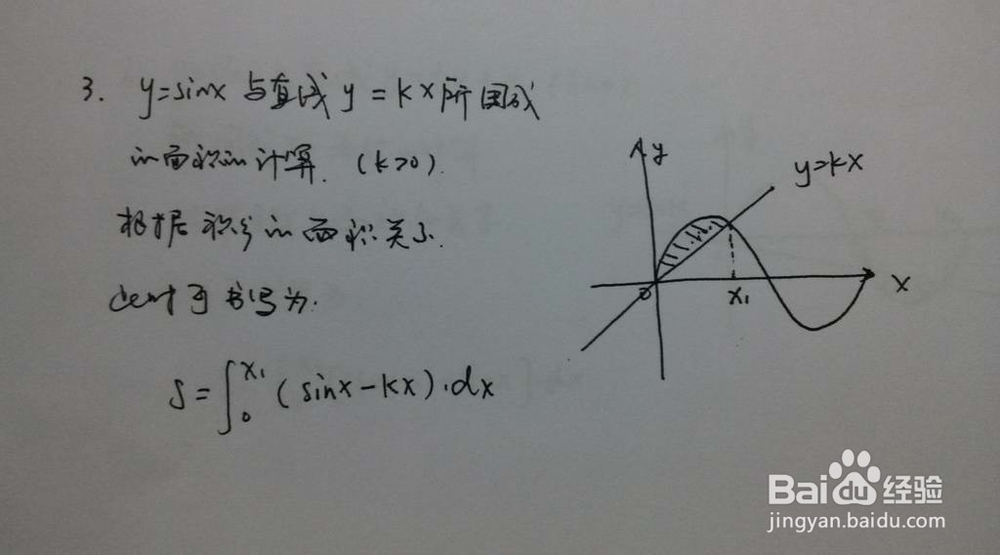 3. y=sinx 与直线 y=kx所围成
的面积的计算. (k>0).
根据积分的面积关系.
此时可书写为:
S=∫₀^x₁ (sinx-kx)·dx
y
y=kx
0
x₁
x
Baidu经验
jingyan.baidu.com